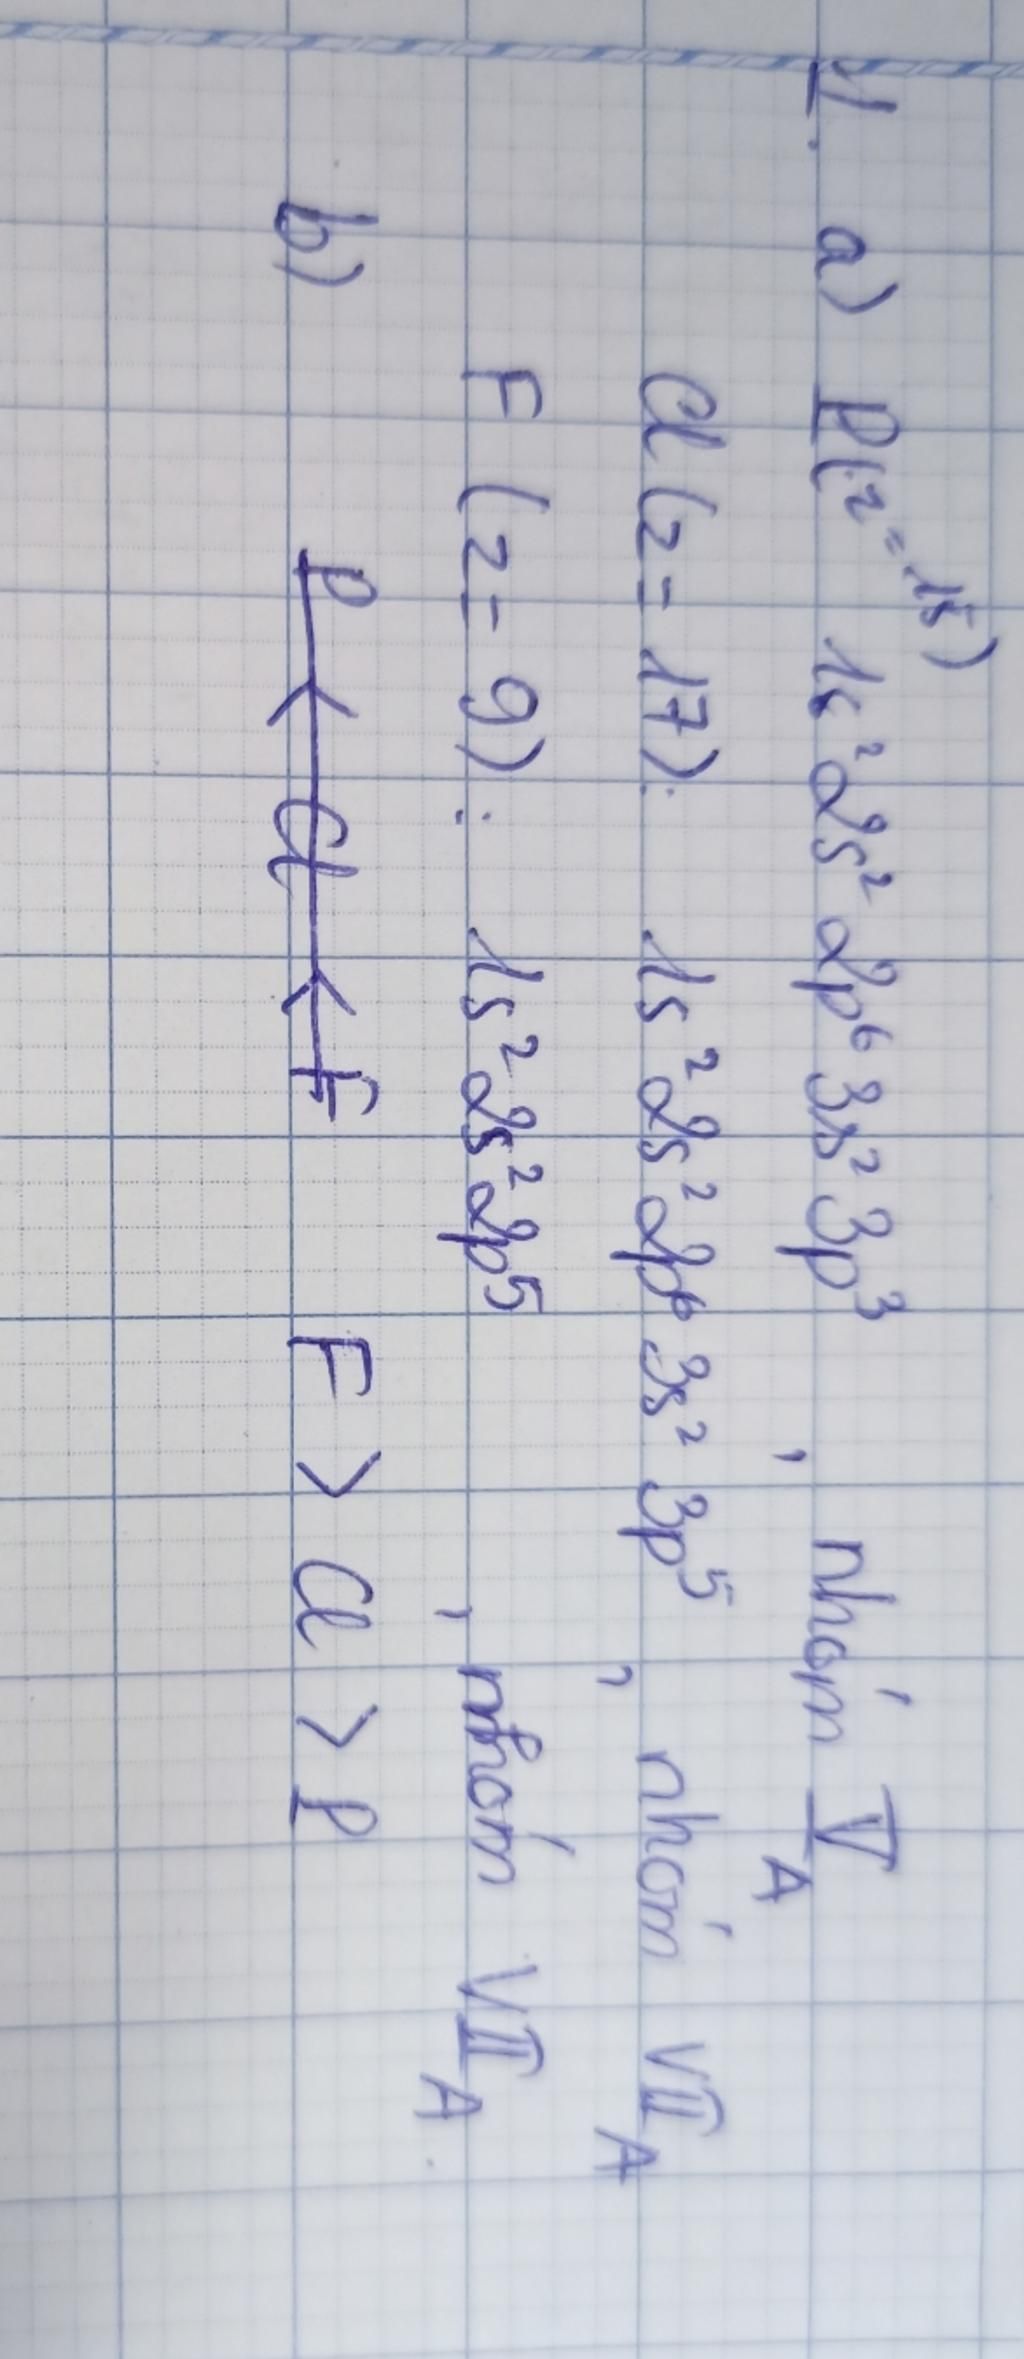 1. a) P(z=15) 1s²2s²2p⁶3s²3p³ , nhóm V_A
Cl (z=17): 1s²2s²2p⁶3s²3p⁵ , nhóm VII_A
F (z=9): 1s²2s²2p⁵ , nhóm VII_A
b) P < Cl < F F > Cl > P